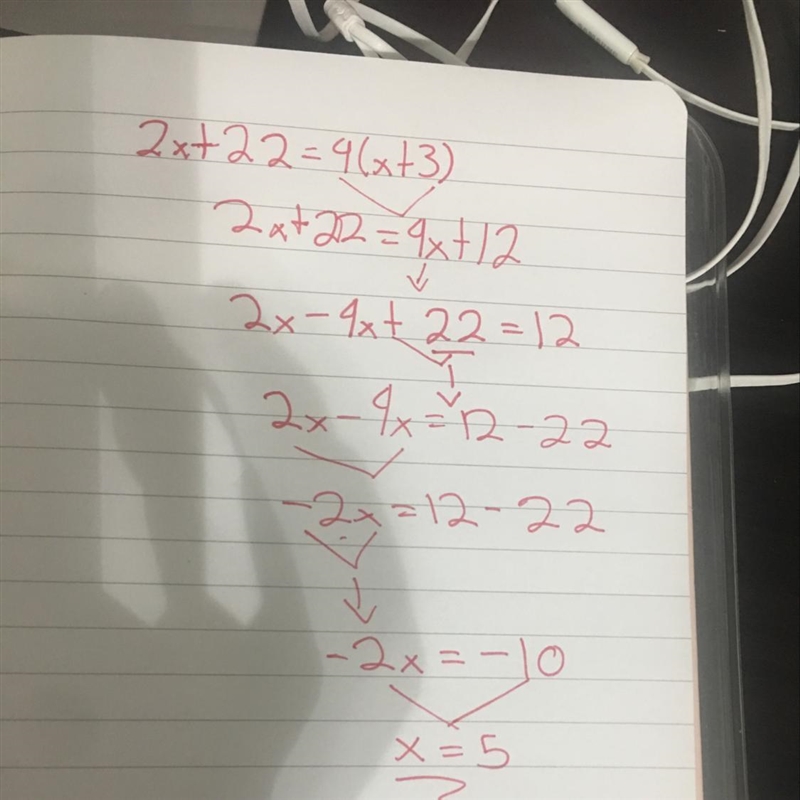 2x+22=4(x+3)
2x+22=4x+12
2x-4x+22=12
2x-4x=12-22
-2x=12-22
-2x=-10
x=5